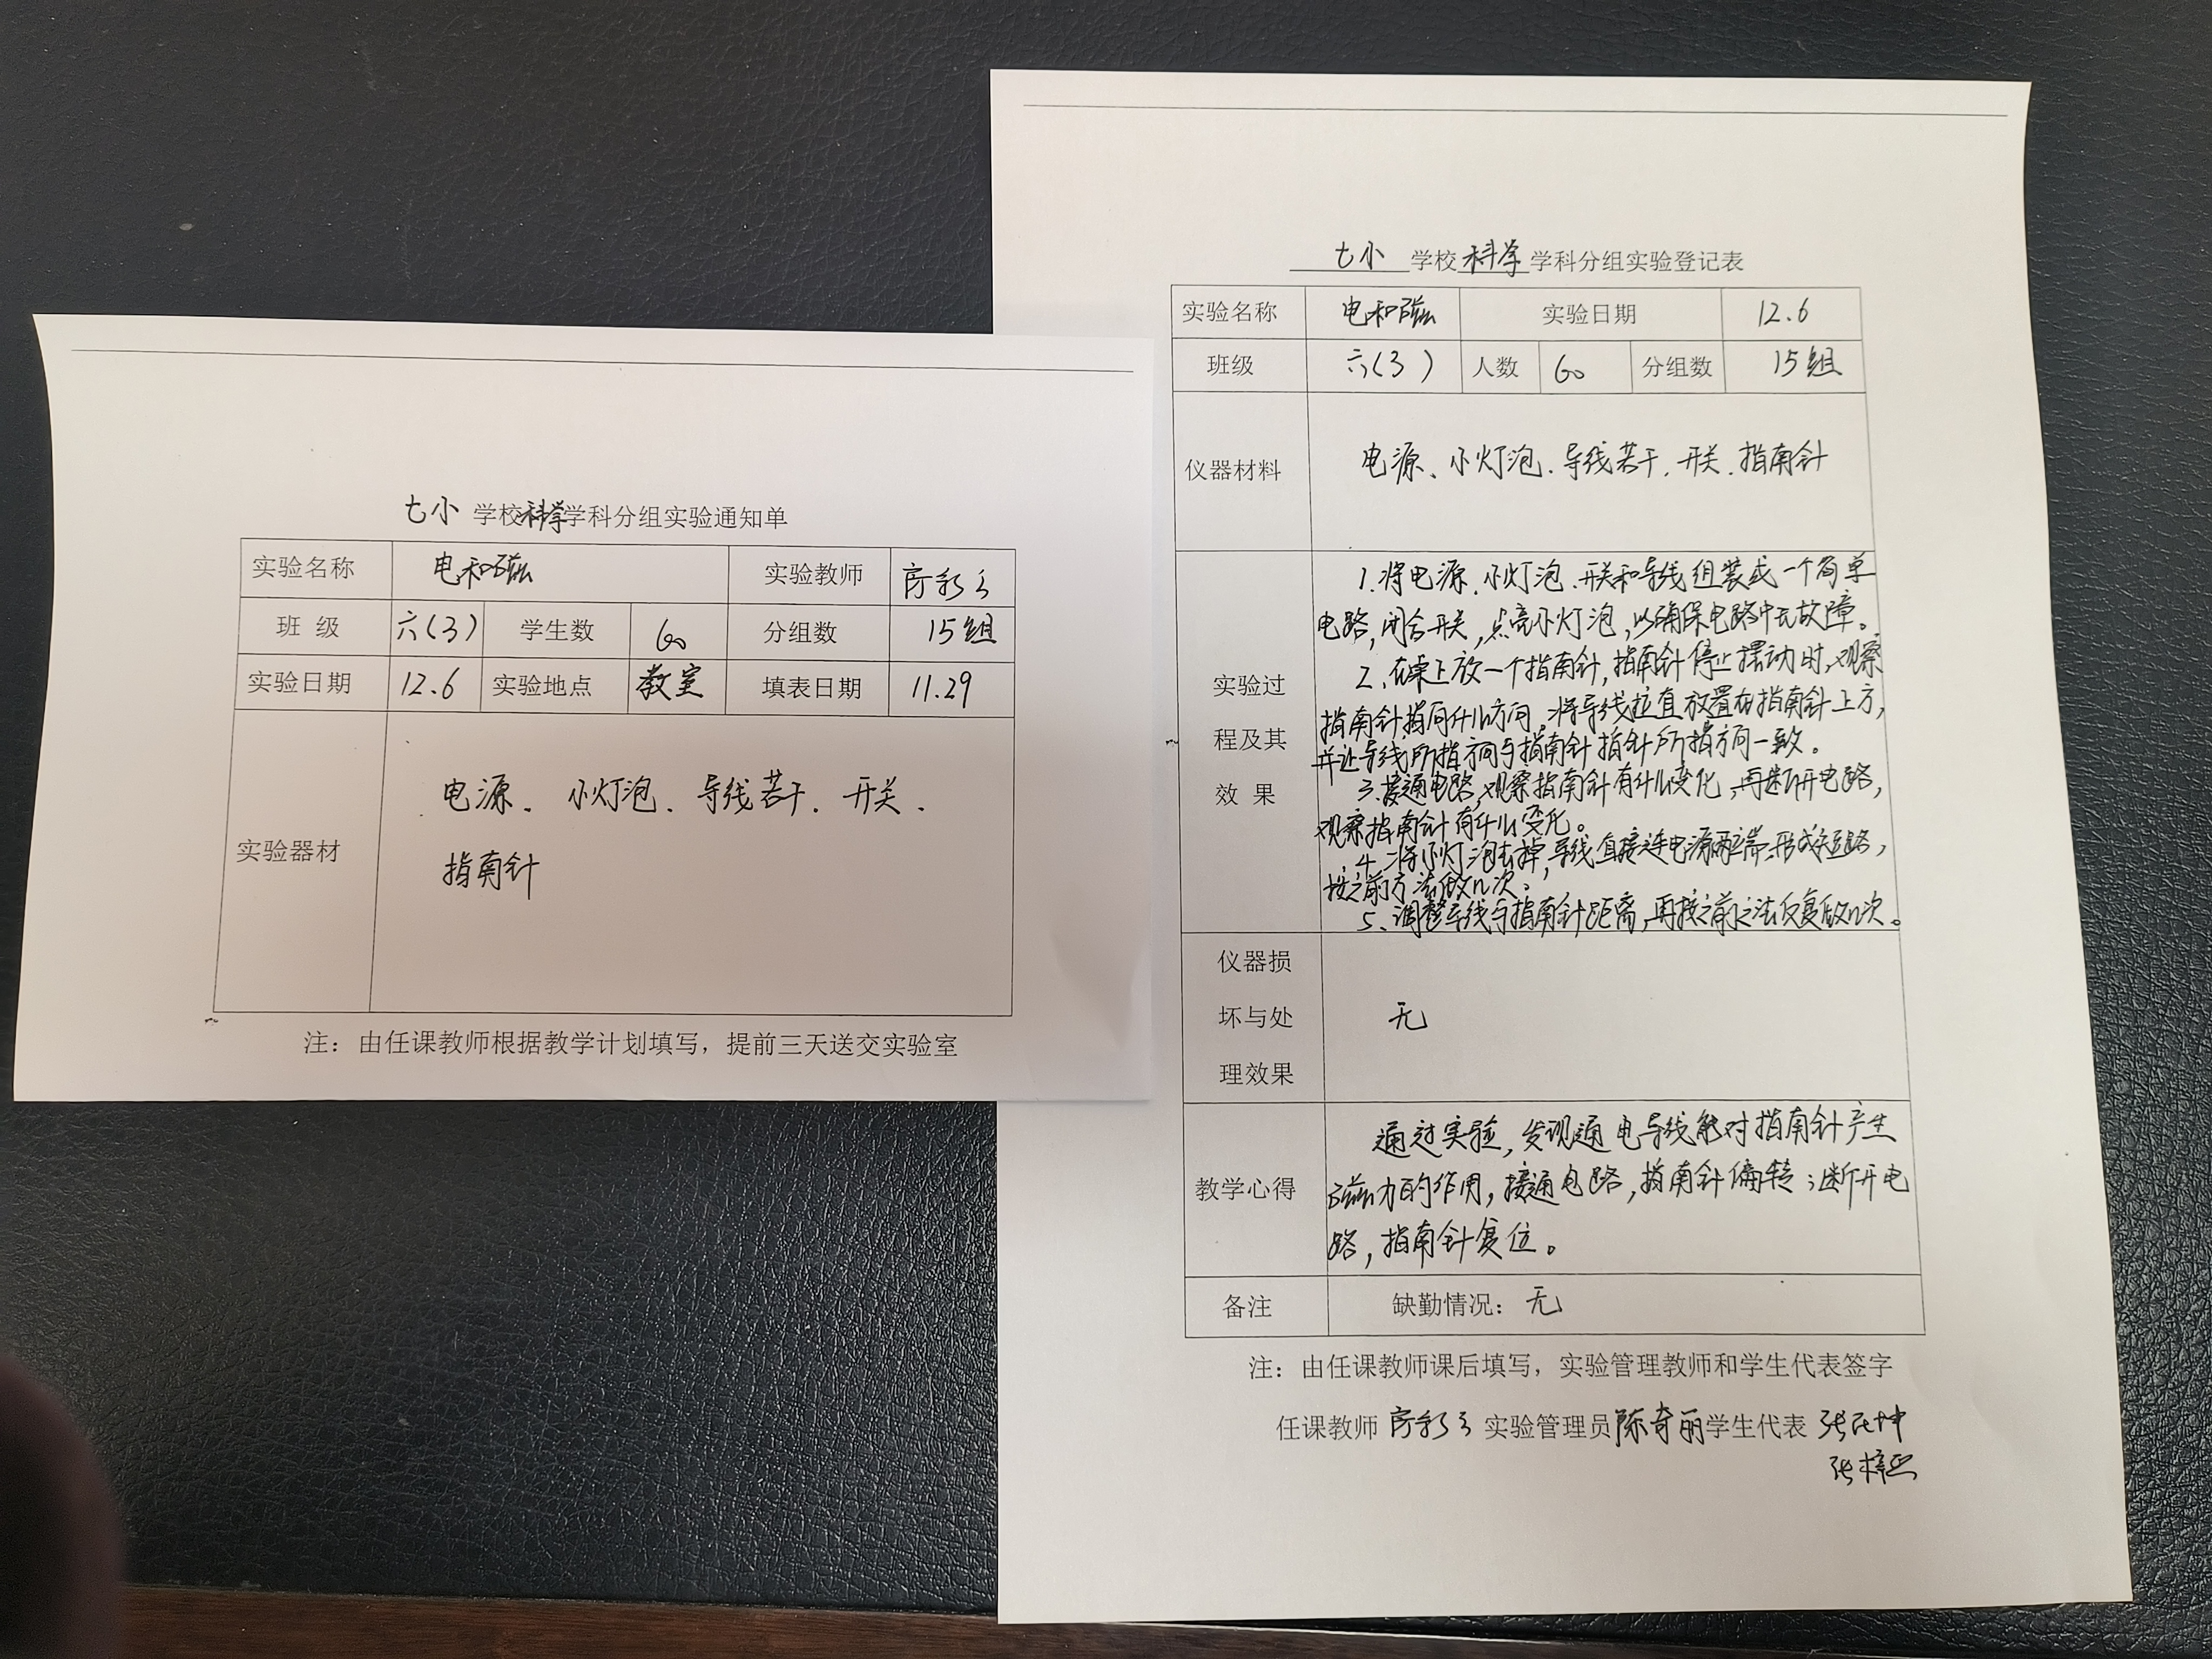 七小 学校科学学科分组实验通知单
实验名称 电和磁 实验教师
班 级 六(3) 学生数 60 分组数 15组
实验日期 12.6 实验地点 教室 填表日期 11.29
实验器材
电源、小灯泡、导线若干、开关、
指南针
注：由任课教师根据教学计划填写，提前三天送交实验室
七小 学校 科学 学科分组实验登记表
实验名称 电和磁 实验日期 12.6
班级 六(3) 人数 60 分组数 15组
仪器材料 电源、小灯泡、导线若干、开关、指南针
实验过
程及其
效 果
1.将电源、小灯泡、开关和导线组装成一个简单
电路,闭合开关,点亮小灯泡,以确保电路中无故障。
2、在桌上放一个指南针,指南针停止摆动时,观察
指南针指向什么方向,将导线拉直放置在指南针上方,
并让导线所指方向与指南针指针所指方向一致。
3、接通电路,观察指南针有什么变化,再断开电路,
观察指南针有什么变化。
4、将小灯泡去掉,导线直接连电源两端,形成短路,
按之前方法做几次。
5、调整导线与指南针距离,再按之前之法反复做几次。
仪器损
坏与处
理效果
无
教学心得
通过实验,发现通电导线能对指南针产生
磁力的作用,接通电路,指南针偏转;断开电
路,指南针复位。
备注 缺勤情况：无
注：由任课教师课后填写，实验管理教师和学生代表签字
任课教师 实验管理员 陈奇丽 学生代表